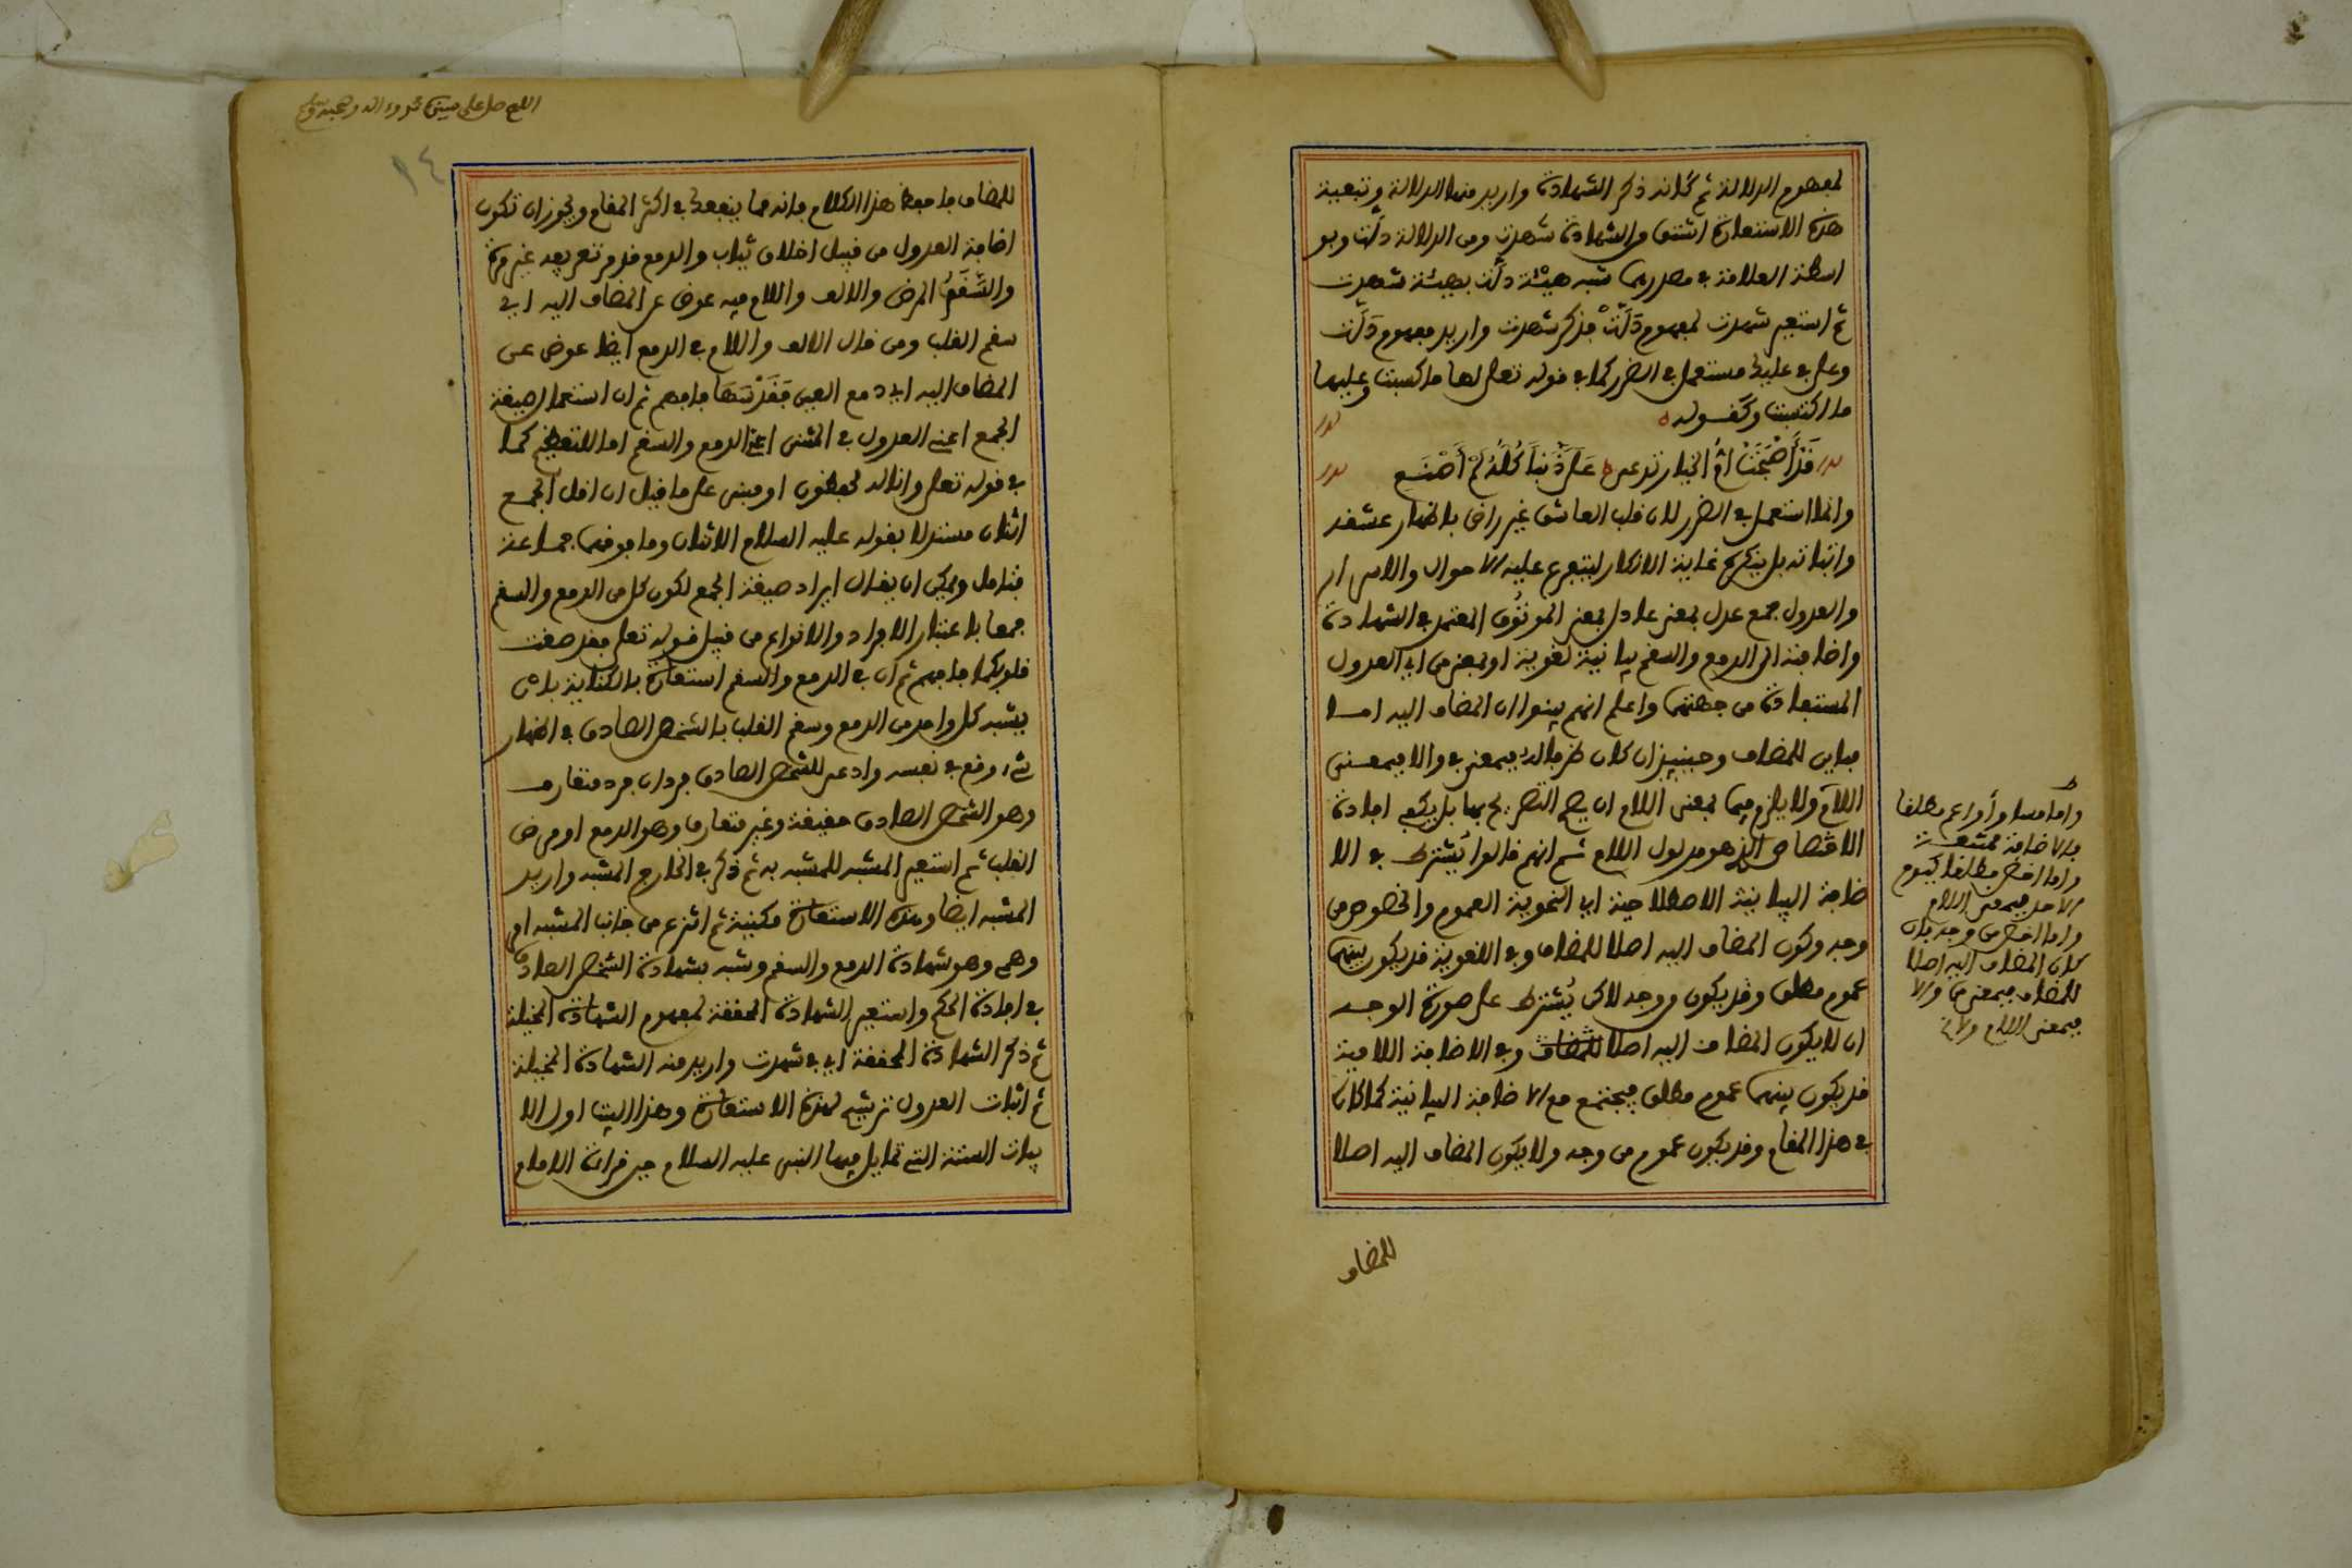 لمفهوم الدلالة ثم كانه ذكر الشهادة واريد منها الدلالة وتبعية
هذه الاستعارة اشتق من الشهادة شهدت ومن الدلالة دلّت وبو
اسطة العلاقة في مصدريهما شبه هيئة دلّت بهيئة شهدت
ثم استعير شهدت لمفهوم دَلَّتْ فذكر شهدت واريد مفهوم دَلَّت
وعلى في عليك مستعمل في الضرر كما في قوله تعلى لها ما كسبت وعليها
ما اكتسبت وكقوله
قَدْ أَصْبَحَتْ أمُّ الخيار تدعى عَلَيَّ ذَنْباً كُلُّهُ لَمْ أَصْنَعِ
وانما استعمل في الضرر لان قلب العاشق غير راض باظهار عشقه
واثباته بل ينكره غاية الانكار ليتفرع عليه الاحوال والاسرار
والعدول جمع عدل بمعنى عادل بمعنى الموثوق المعتمد في الشهادة
واضافته الى الدمع والسقم بيانية لغوية او بمعنى من اي العدول
المستفادة من جهتهما واعلم انهم بينوا ان المضاف اليه اما
مباين للمضاف وحينئذ ان كان ظرفا له فبمعنى في والا فبمعنى
اللام ولا يلزم فيما بمعنى اللام ان يصح التصريح بها بل يكفي افادة
الاختصاص الذي هو مدلول اللام ثم انهم قالوا يُشترط في الا
ضافة البيانية الاصطلاحية اي النحوية العموم والخصوص من
وجه وكون المضاف اليه اصلا للمضاف وفي اللغوية قد يكون بينهما
عموم مطلق وقد يكون من وجه لاكن يُشترط على صورة الوجه
ان لا يكون المضاف اليه اصلا للمضاف وفي الاضافة اللامية
قد يكون بينهما عموم مطلق فيجتمع مع الاضافة البيانية كما كان
في هذا المقام وقد يكون عموم من وجه ولا يكون المضاف اليه اصلا
للمضاف
واما مساو أو اعم مطلقا
فالاضافة ممتنعة
واما اخص مطلقا كيوم
الاحد فبمعنى اللام
واما اخص من وجه فان
كان المضاف اليه اصلا
للمضاف فبمعنى من والا
فبمعنى اللام
اللهم صل على سيدنا محمد وءاله وصحبه وسلم
١٤
للمضاف فاحفظ هذا الكلام فانه مما ينفعك في اكثر المقام ويجوز ان تكون
اضافة العدول من قبيل اخلاق ثياب والدمع قد مر تعريفه غير مرة
والسَّقَمُ المرض والالف واللام فيه عوض عن المضاف اليه اي
سقم القلب ومن قال الالف واللام في الدمع ايضا عوض عن
المضاف اليه اي دمع العين فافهم ثم ان استعمال صيغة
الجمع اعني العدول في المثنى اعني الدمع والسقم اما للتعظيم كما
في قوله تعلى وانا له لحفظون او مبنى على ما قيل ان اقل الجمع
اثنان مستدلا بقوله عليه السلام الاثنان وما فوقهما جماعة
فتامل ويمكن ان يقال ايراد صيغة الجمع لكون كل من الدمع والسقم
جمعا باعتبار الافراد والانواع من قبيل قوله تعلى فقد صغت
قلوبكما فافهم ثم ان في الدمع والسقم استعارة بالكناية بان
يشبه كل واحد من الدمع وسقم القلب بالشخص الصادق في اظهار
شيء وقع في نفسه وادعى للشخص الصادق فردان فرد متعارف
وهو الشخص الصادق حقيقة وغير متعارف وهو الدمع او مرض
القلب ثم استعير المشبه للمشبه به ثم ذكر في الخارج المشبه واريد
المشبه ايضا وهذه الاستعارة مكنية ثم انتزع من جانب المشبه امر
وهمي وهو شهادة الدمع والسقم وشبه بشهادة الشخص الصادق
في افادة الحكم واستعير الشهادة المحققة لمفهوم الشهادة المخيلة
ثم ذكر الشهادة المحققة اي في شهدت واريد منه الشهادة المخيلة
ثم اثبات العدول ترشيح لهذه الاستعارة وهذا البيت اول الا
بيات الستة التي تمايل فيها النبي عليه السلام حين قراءة الامام